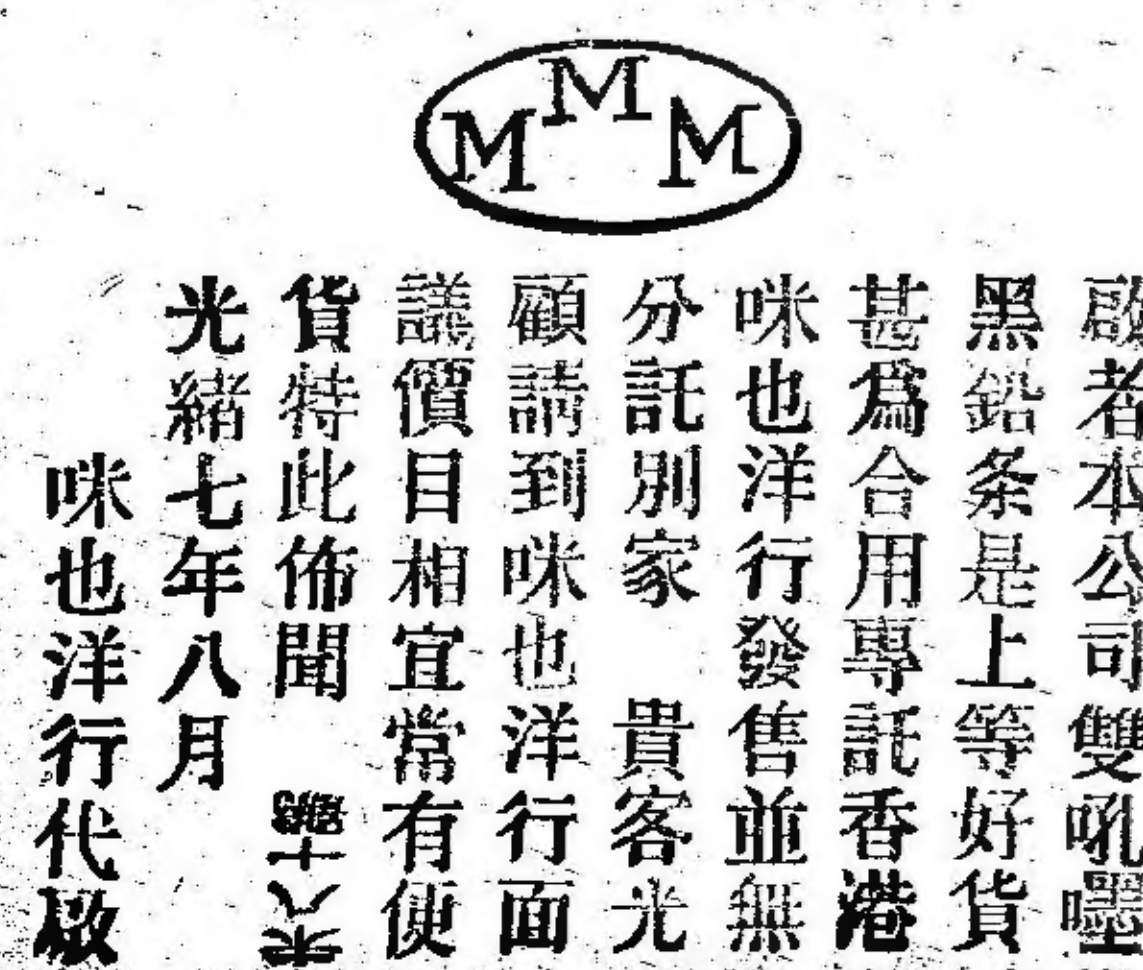 MMM
啟者本公司雙吼嚜
黑鉛条是上等好貨
甚爲合用專託香港
咪也洋行發售並無
分託別家 貴客光
顧請到咪也洋行面
議價目相宜常有便
貨特此佈聞
光緒七年八月
咪也洋行代啟